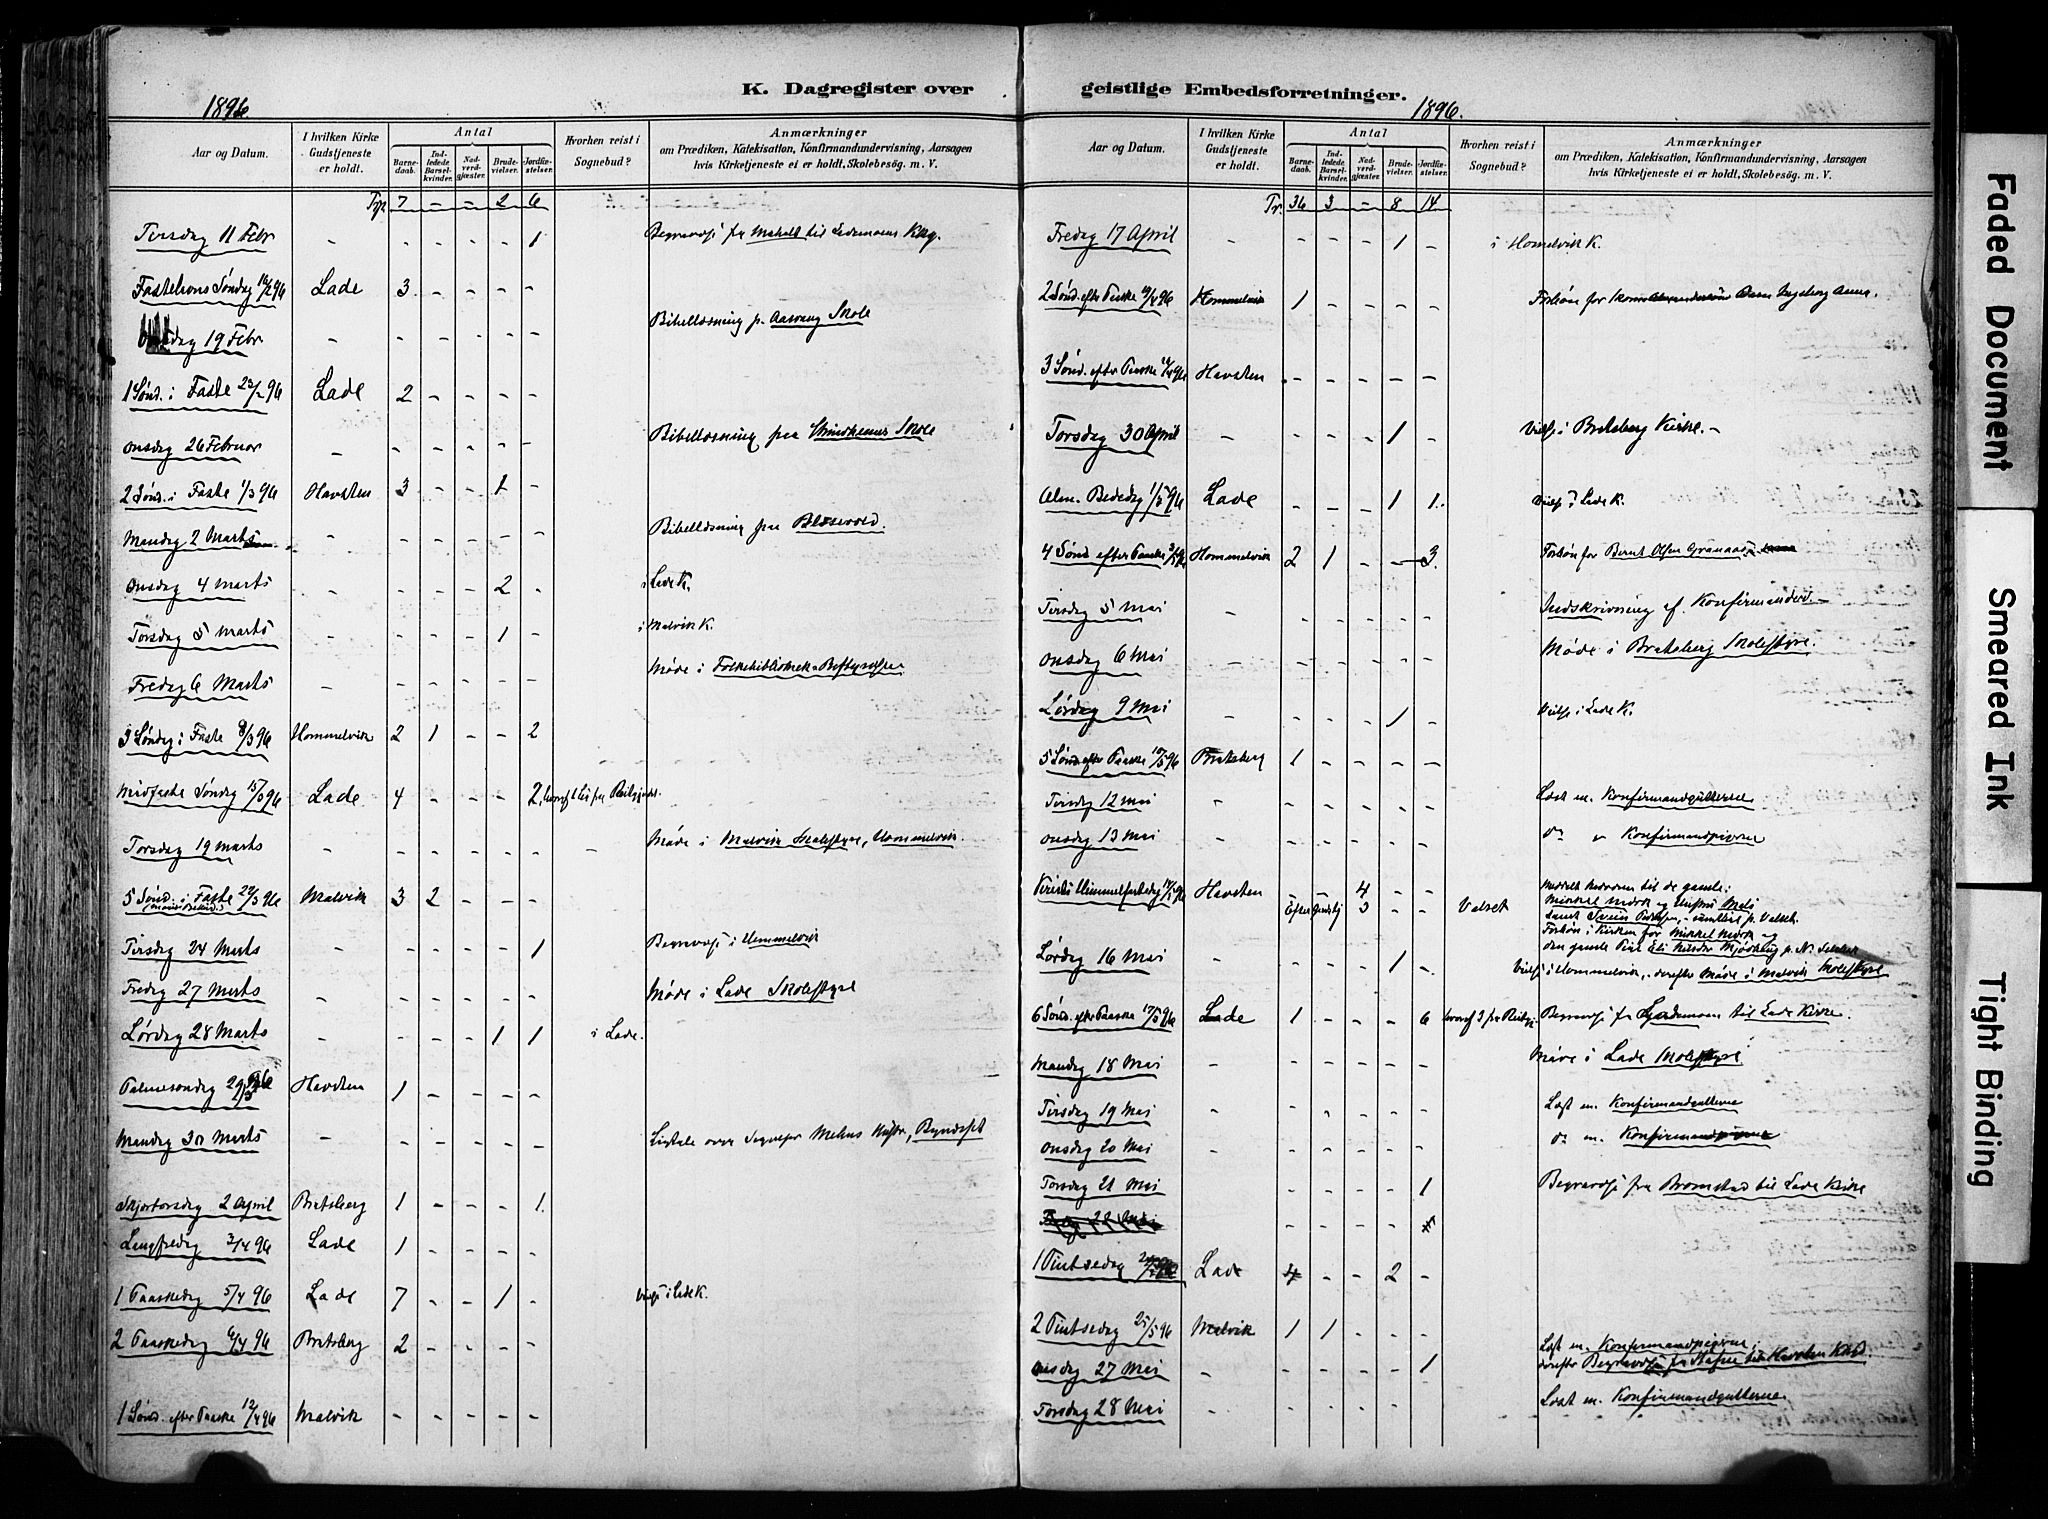 K. Dagregister over
1896
Aar og Datum. | I hvilken Kirke Gudstjeneste er holdt. | Antal | Barnedaab. | Indledede Barselkvinder. | Nadverdgjæster. | Brudevielser. | Jordfæstelser. | Hvorhen reist i Sognebud? | Anmærkninger om Prædiken, Katekisation, Konfirmandundervisning, Aarsagen hvis Kirketjeneste ei er holdt, Skolebesøg. m. V.
7 – – 2 6
Tirsdag 11 Febr – – – – – 1 til Lademoens Kkg.
Fastelavns Søndag 16/2 96 Lade 3 – – – –
19 Febr – – – – – – Bibellæsning p. Aasvang Skole
1 Sønd. i Faste 23/2 96 Lade 2 – – – –
Onsdag 26 Februar – – – – – – Bibellæsning paa Strindheims Skole
2 Sønd. i Faste 1/3 96 Havsten 3 – – 1 –
Mandag 2 Marts – – – – – Bibellæsning paa Blæsevold.
Onsdag 4 Marts – – – – 2 – i Lade K.
Torsdag 5 Marts – – – – 1 – i Malvik K.
Fredag 6 Marts – – – – – – Møde i
3 Søndag i Faste 8/3 96 Hommelvik 2 1 – – 2
Midfaste Søndag 15/3 96 Lade 4 – – – 2
Torsdag 19 Marts – – – – – – – Møde i Malvik Skolestyre, Hommelvik
5 Sønd. i Faste 22/3 96 Malvik 3 2 – – –
Tirsdag 24 Marts – – – – – 1 i Hommelvik
Fredag 27 Marts – – – – – – Møde i Lade Skolestyre
Lørdag 28 Marts – – – – 1 1 i Lade.
Palmesøndag 29/3 96 Havsten 1 – – – –
Mandag 30 Marts – – – – – – Ligtale over
Skjærtorsdag 2 April Bratsberg 1 – – – 1
Langfredag 3/4 96 Lade 1 – – – –
1 Paaskedag 5/4 96 Lade 7 – – 1 – i Lade K.
2 Paaskedag 6/4 96 Bratsberg 2 – – – –
1 Sønd. efter Paaske 12/4 96 Malvik – – – – –
geistlige Embedsforretninger.
1896.
Aar og Datum. | I hvilken Kirke Gudstjeneste er holdt. | Antal | Barnedaab. | Indledede Barselkvinder. | Nadverdgjæster. | Brudevielser. | Jordfæstelser. | Hvorhen reist i Sognebud? | Anmærkninger om Prædiken, Katekisation, Konfirmandundervisning, Aarsagen hvis Kirketjeneste ei er holdt, Skolebesøg. m. V.
Tr. 36 3 – 8 14
Fredag 17 April – – – – 1 – i Hommelvik K.
2 Sønd. efter Paaske 19/4 96 Hommelvik 1 – – – – Forbøn for Ingeborg Anna.
3 Sønd. efter Paaske 26/4 96 Havsten – – – – –
Torsdag 30 April – – – – 1 – i Bratsberg Kirke. –
Alm. Bededag 1/5 96 Lade – – – 1 1 Lade K.
4 Sønd efter Paaske 3/5 96 Hommelvik 2 1 – – 3. Forbøn for Bernt Olsen
Tirsdag 5 Mai – – – – – – Indskrivning af Konfirmander. –
Onsdag 6 Mai – – – – – – Møde i Bratsberg Skolestyre.
Lørdag 9 Mai – – – – 1 – i Lade K.
5 Sønd. efter Paaske 10/5 96 Bratsberg 1 – – – –
Tirsdag 12 Mai – – – – – – Læst m. Konfirmandgutterne
Onsdag 13 Mai – – – – – – do Konfirmandpigerne
Kristi Himmelfartsdag 14/5 96 Havsten – – 4 – –
Efter Gudstj 3 – – Valset
til de gamle:
Mikkel
Forbøn i Kirken for Mikkel
den gamle Pige Eli
Lørdag 16 Mai – – – – 1 – i Hommelvik, derefter Møde i Malvik Skolestyre
6 Sønd. efter Paaske 17/5 96 Lade 1 – – – 6 til Lade Kirke.
Mandag 18 Mai – – – – – – Møde i Lade Skolestyre
Tirsdag 19 Mai – – – – – – Læst m. Konfirmandgutterne
Onsdag 20 Mai – – – – – – do m. Konfirmandpigerne
Torsdag 21 Mai – – – – 1 fra Bromstad til Lade Kirke
22 Mai – – – –
1 Pintsedag 24/5 96 Lade 4 – – 2 –
2 Pintsedag 25/5 96 Malvik 1 1 – – –
Læst m. Konfirmandpigerne,
Onsdag 27 Mai – – – – – 1 derefter
Torsdag 28 Mai – – – – – – Læst m. Konfirmandgutterne.
Faded Document
Smeared Ink
Tight Binding